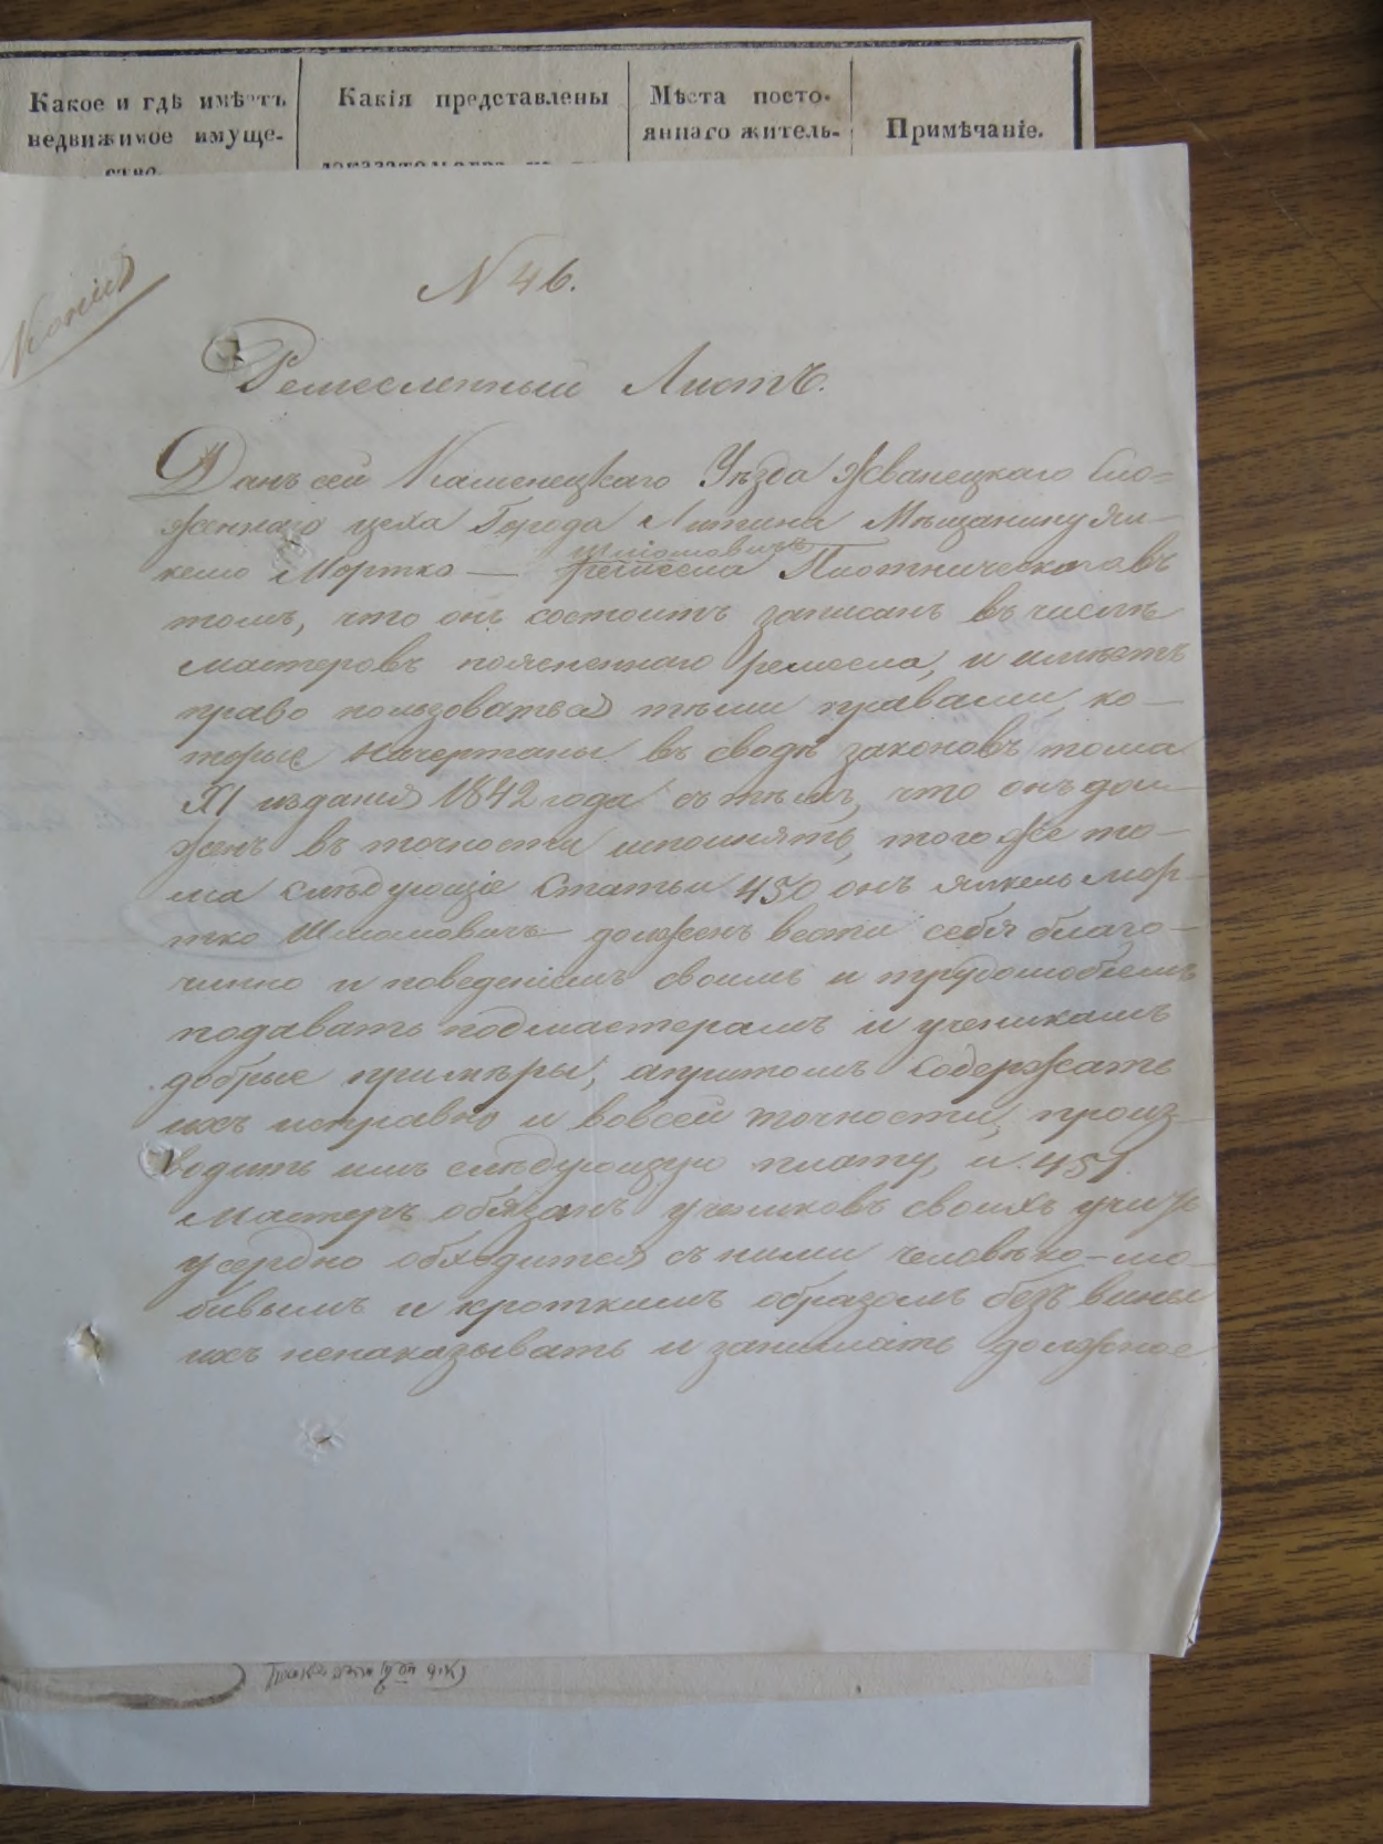 Какое и гдѣ имѣетъ
недвижимое имуще-
ство.
Какія представлены
Мѣста посто-
яннаго житель-
Примѣчаніе.
Копія
N 46.
Ремесленный Листъ.
Данъ сей Каменецкаго Уѣзда Жванецкаго Сло=
женнаго цеха Города Литина Мѣщанину Ян-
келю Мортко — ремесла Плотническаго въ
Шліомовичъ
томъ, что онъ состоитъ записанъ въ числѣ
мастеровъ поясненнаго ремесла, и имѣетъ
право пользоваться тѣми правами, ко-
торые начертаны въ сводѣ законовъ тома
XI изданія 1842 года съ тѣмъ, что онъ дол-
женъ въ точности исполнять, того же то-
ма слѣдующіе Статьи 450 онъ Янкель Мор-
тко Шлиомовичъ должен вести себя благо-
чинно и поведеніемъ своимъ и трудолюбіемъ
подавать подмастерамъ и ученикамъ
добрые примѣры, апритомъ содержать
ихъ исправно и вовсей точности, произ-
водить имъ слѣдующую плату, и 451.
Мастеръ обязанъ учениковъ своихъ учить
усердно обходится съ ними человѣко-лю-
бивымъ и кроткимъ образомъ безъ вины
ихъ ненаказывать и занимать должное